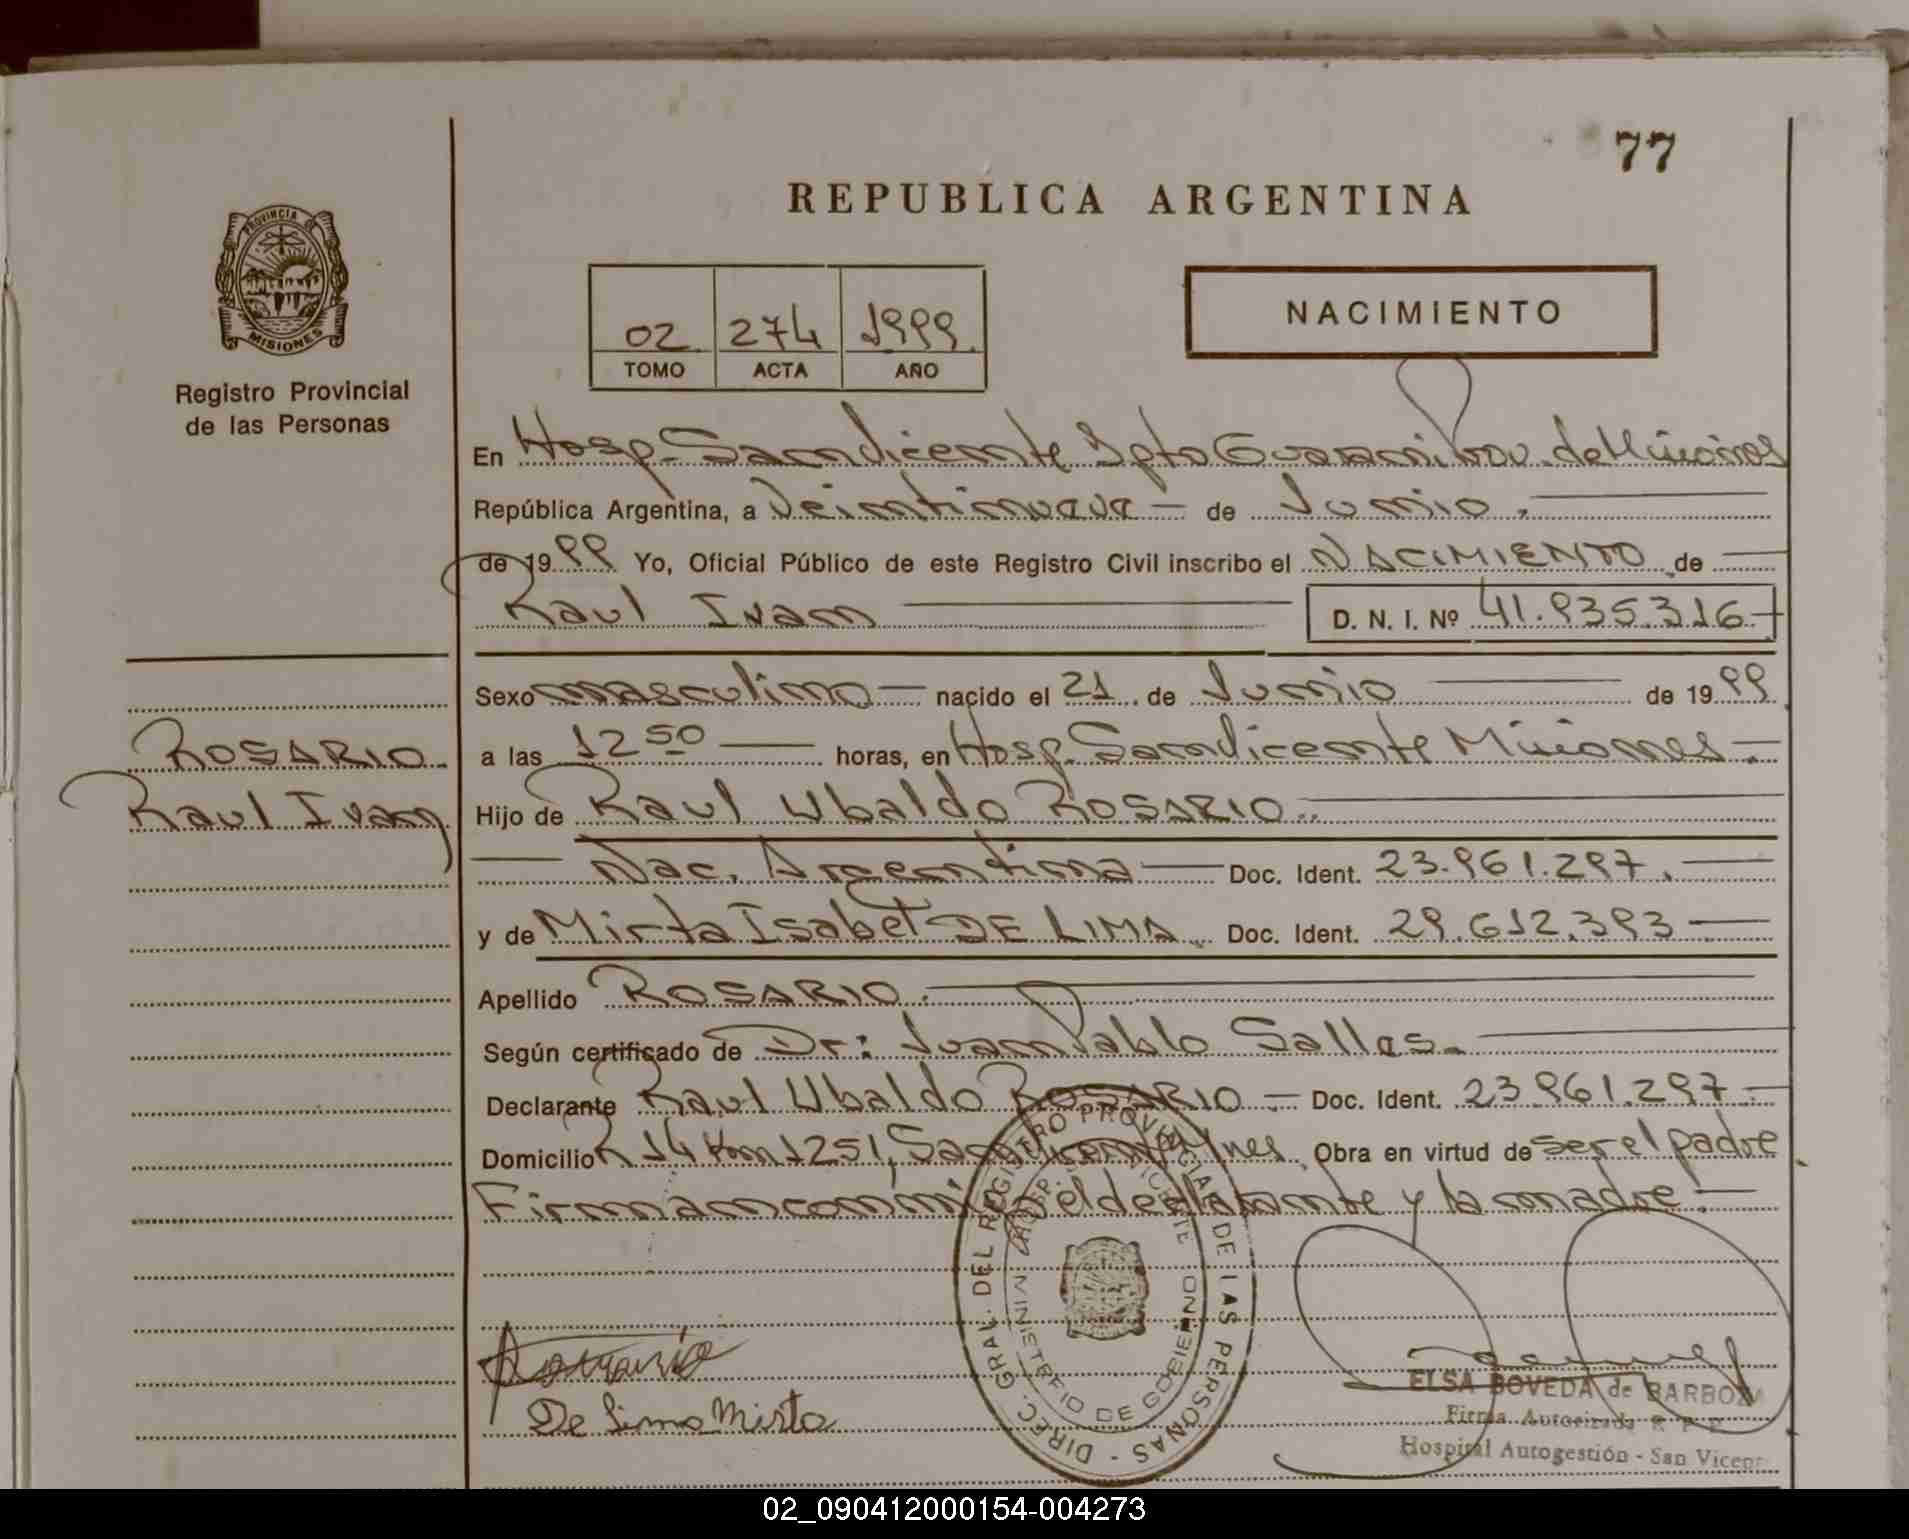 77
REPUBLICA ARGENTINA
PROVINCIA
MISIONES
Registro Provincial
de las Personas
02 274 1999
TOMO ACTA AÑO
NACIMIENTO
En Hosp. San Vicente Dpto Guarani Prov. de Misiones
República Argentina, a Veintinueve — de Junio.
de 1999 Yo, Oficial Público de este Registro Civil inscribo el NACIMIENTO de
Raul Ivan D. N. I. Nº 41.935.316
Sexo masculino — nacido el 21 de Junio de 1999
ROSARIO
Raul Ivan
a las 12 50 — horas, en Hosp. San Vicente Misiones —
Hijo de Raul Ubaldo ROSARIO
— Nac. Argentina — Doc. Ident. 23.961.297. —
y de Mirta Isabel DE LIMA Doc. Ident. 29.612.393 —
Apellido ROSARIO.
Según certificado de Dr: Juan Pablo Sallas.
Declarante Raul Ubaldo ROSARIO — Doc. Ident. 23.961.297 —
Domicilio R 14 Km 1251, San Vicente Mnes. Obra en virtud de ser el padre
Firman conmigo el declarante y la madre. —
DIREC. GRAL. DEL REGISTRO PROVINCIAL DE LAS PERSONAS
MINISTERIO DE GOBIERNO
Rosario
De Lima Mirta
ELSA BOVEDA de BARBOZA
Firma Autorizada R P P
Hospital Autogestión - San Vicente
02_090412000154-004273